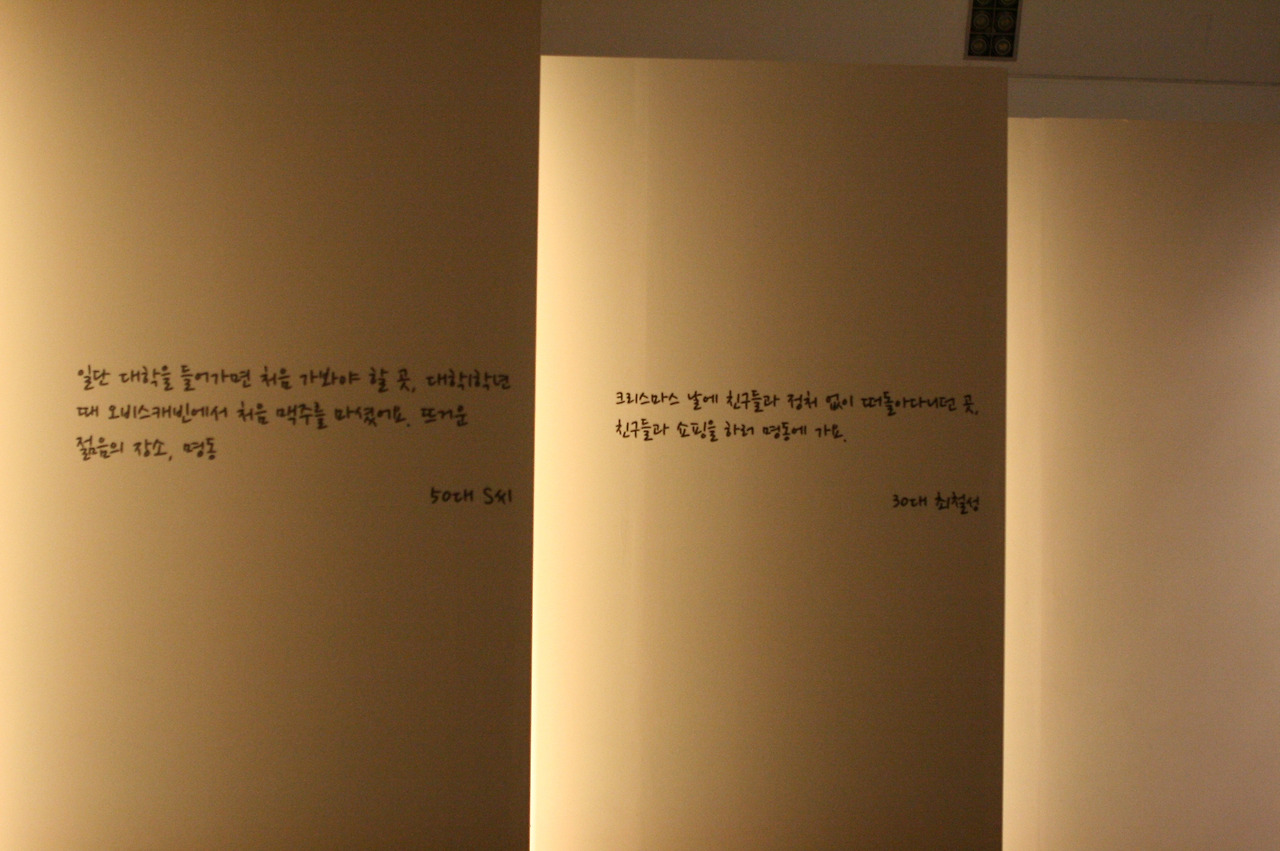 일단 대학을 들어가면 처음 가봐야 할 곳, 대학1학년
때 오비스캐빈에서 처음 맥주를 마셨어요. 뜨거운
젊음의 장소, 명동
50대 S씨
크리스마스 날에 친구들과 정처 없이 떠돌아다니던 곳,
친구들과 쇼핑을 하러 명동에 가요.
30대 최철성